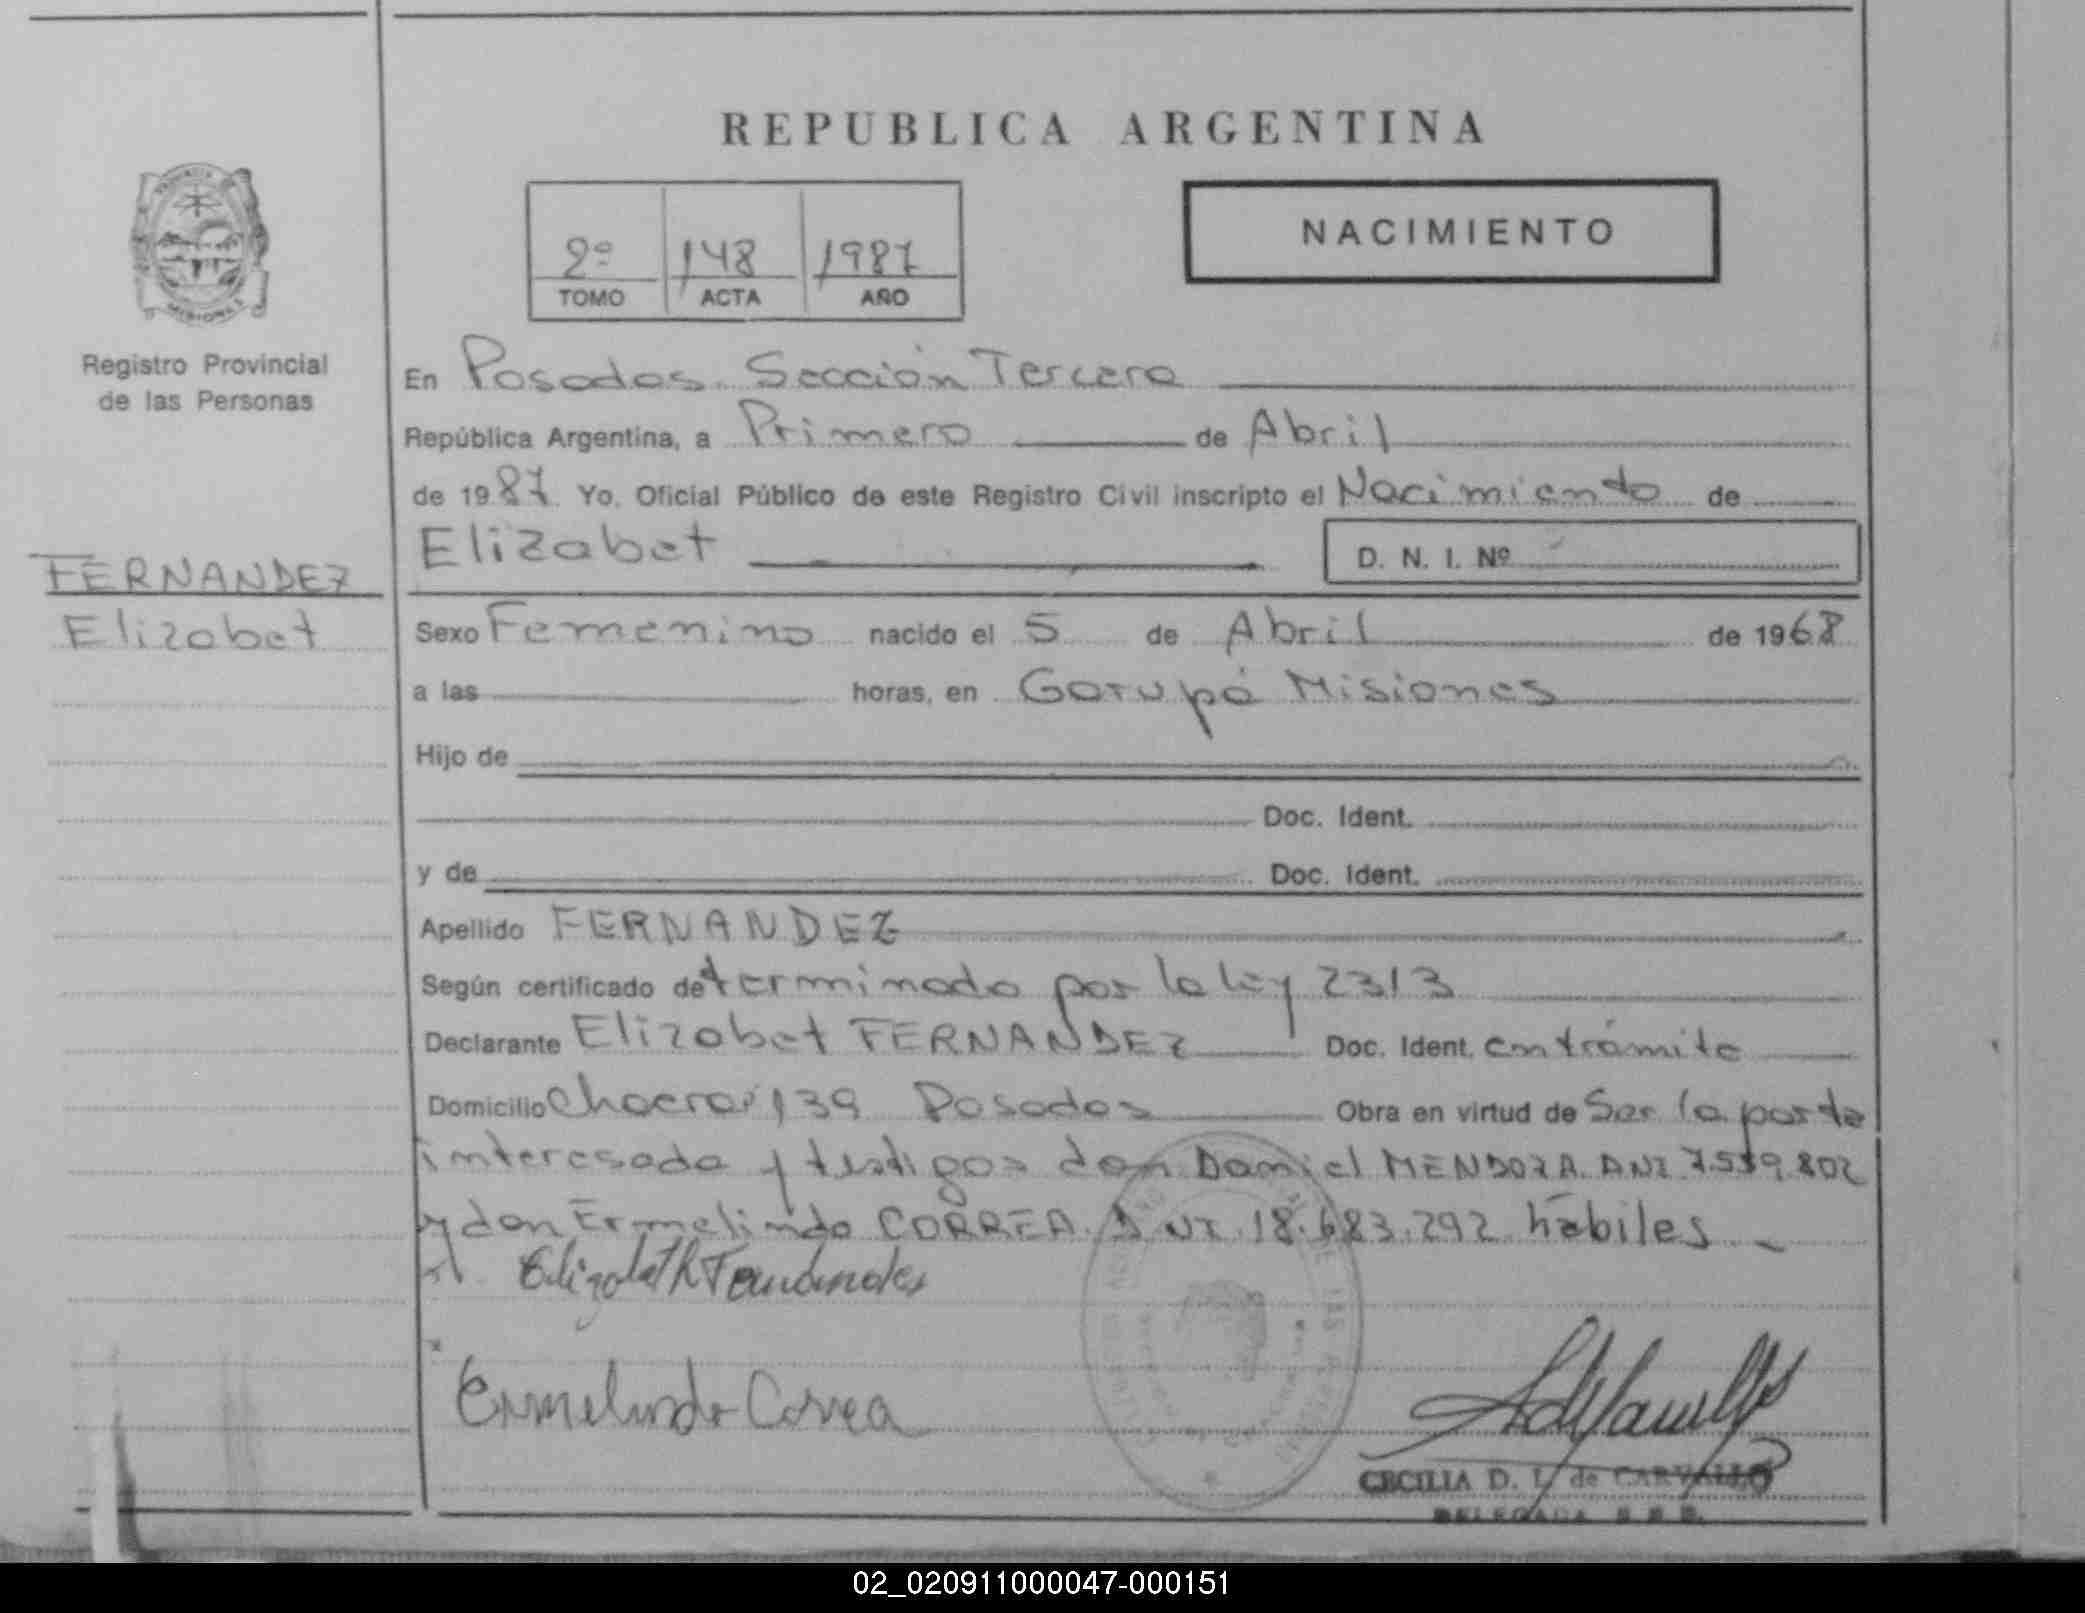 REPUBLICA ARGENTINA
NACIMIENTO
2º 148 1987
TOMO ACTA AÑO
MISIONES
Registro Provincial
de las Personas
FERNANDEZ
Elizabet
En Posadas. Sección Tercera
República Argentina, a Primero de Abril
de 1987 Yo, Oficial Público de este Registro Civil inscripto el Nacimiento de
Elizabet
D. N. I. Nº
Sexo Femenino nacido el 5 de Abril de 1968
a las horas, en Garupá Misiones
Hijo de
Doc. Ident.
y de Doc. Ident.
Apellido FERNANDEZ
Según certificado determinado por la ley 2313
Declarante Elizabet FERNANDEZ Doc. Ident. en trámite
Domicilio Chacra 139 Posadas Obra en virtud de Ser la parte
interesada y testigos don Daniel MENDOZA. DNI. 7.539.802
y don Ermelindo CORREA. DNI. 18.683.292 hábiles
Elizabeth Fernandes
Ermelindo Correa
CECILIA D. L. de CARVALLO
DELEGADA R.P.P.
02_020911000047-000151